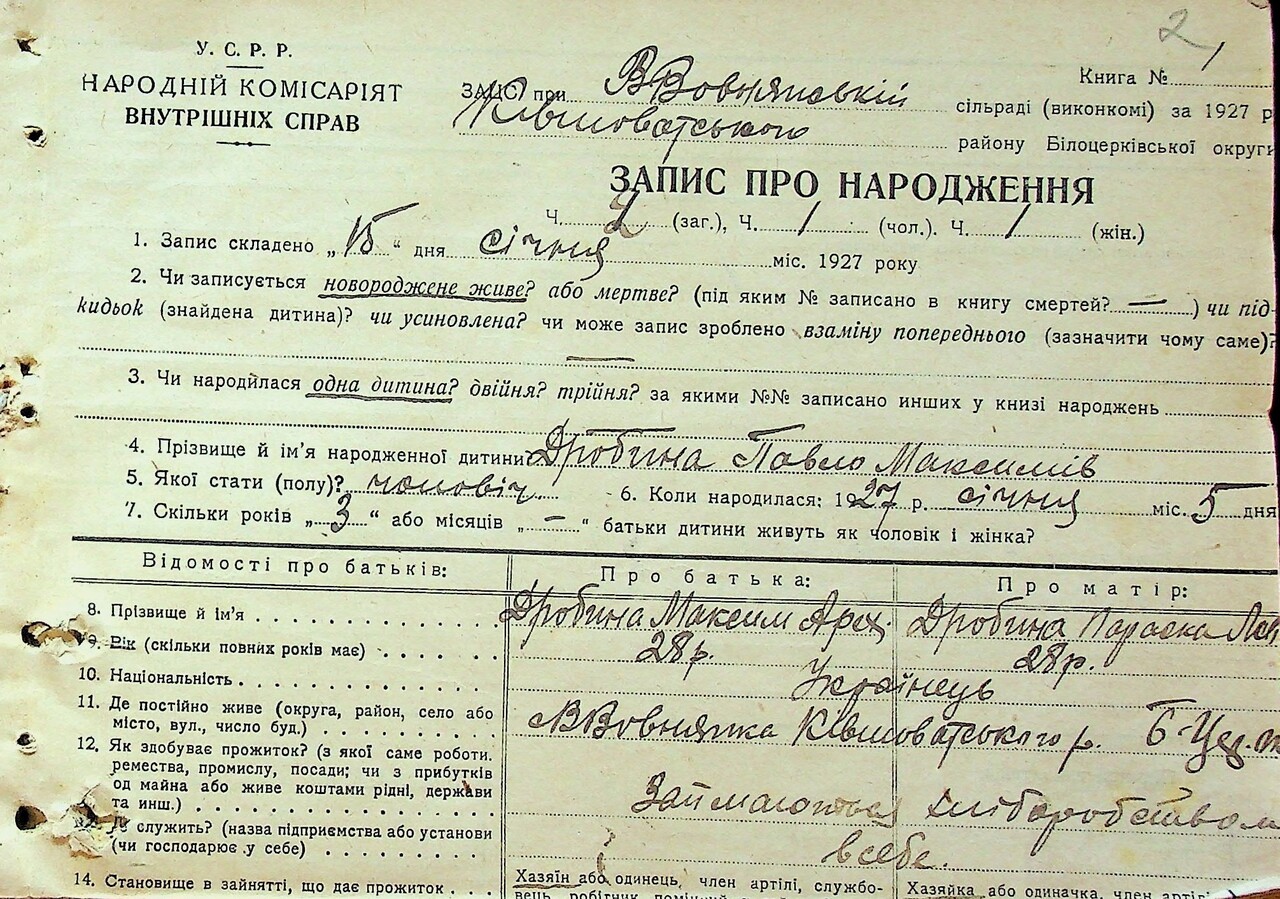 2
У. С. Р. Р.
НАРОДНІЙ КОМІСАРІЯТ
ВНУТРІШНІХ СПРАВ
Книга №
1
ЗАЦС при ВВовнянській сільраді (виконкомі) за 1927 р
Ківшоватського району Білоцерківської округи
ЗАПИС ПРО НАРОДЖЕННЯ
Ч. 2 (заг.), Ч. 1 (чол.). Ч. 1 (жін.)
1. Запис складено „15" дня січня міс. 1927 року
2. Чи записується новороджене живе? або мертве? (під яким № записано в книгу смертей? — ) чи під-
кидьок (знайдена дитина)? чи усиновлена? чи може запис зроблено взаміну попереднього (зазначити чому саме)?
—
3. Чи народилася одна дитина? двійня? трійня? за якими №№ записано инших у книзі народжень
4. Прізвище й ім'я народженної дитини Дробина Павло Максимів
5. Якої стати (полу)? чоловіч 6. Коли народилася: 1927 р. січня міс. 5 дня
7. Скільки років „3" або місяців „-" батьки дитини живуть як чоловік і жінка?
Відомості про батьків: Про батька: Про матір:
8. Прізвище й ім'я Дробина Максим Дробина Параска
9. Вік (скільки повних років має) 28р. 28р.
10. Національність Українець
11. Де постійно живе (округа, район, село або
місто, вул., число буд.) ВВовнянка Ківшоватського р.
12. Як здобуває прожиток? (з якої саме роботи.
ремества, промислу, посади; чи з прибутків
од майна або живе коштами рідні, держави
та инш.) Займаються хліборобством
служить? (назва підприємства або установи
(чи господарює у себе) всебе.
14. Становище в зайнятті, що дає прожиток
Хазяїн або одинець, член артілі, службо-
вець, робітник
Хазяйка або одиначка, член артілі